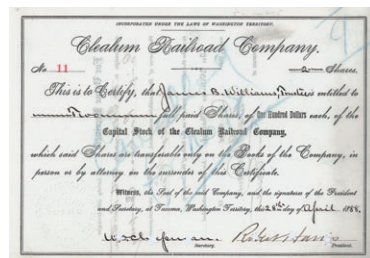 INCORPORATED UNDER THE LAWS OF WASHINGTON TERRITORY.
Clealum Railroad Company.
No 11 2 Shares.
This is to Certify, that James B. Williams, Trustee is entitled to
Two full paid Shares, of One Hundred Dollars each, of the
Capital Stock of the Clealum Railroad Company,
which said Shares are transferable only on the Books of the Company, in
person or by attorney on the surrender of this Certificate.
Witness, the Seal of the said Company, and the signatures of the President
and Secretary, at Tacoma, Washington Territory, this 28th day of April 1888.
Secretary. President.